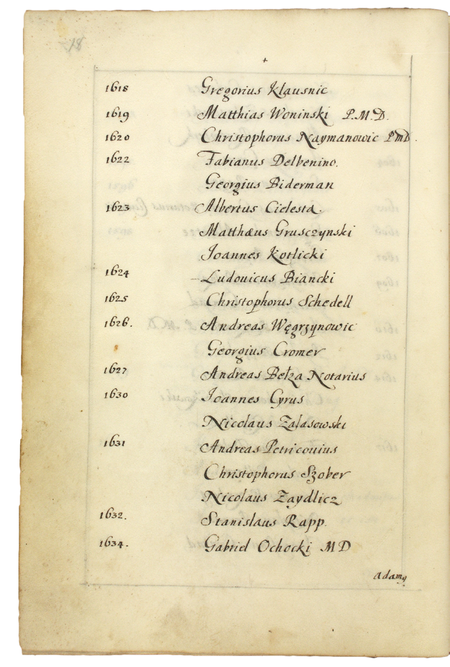 18
1618 Gregorius Klausnic
1619 Matthias Woninski P.M.D.
1620 Christophorus Naymanowic PMD.
1622 Fabianus Delbenino.
Georgius Biderman
1623 Albertus Cielesta
Matthæus Grusczynski
Joannes Kotlicki
1624 Ludovicus Biancki
1625 Christophorus Schedell
1626. Andreas Węgrzynowic
Georgius Cromer
1627 Andreas Bełza Notarius
1630 Joannes Cyrus
Nicolaus Zalasowski
1631 Andreas Petricouius
Christophorus Szober
Nicolaus Zaydlicz
1632. Stanislaus Rapp.
1634. Gabriel Ochocki MD
Adamꝰ